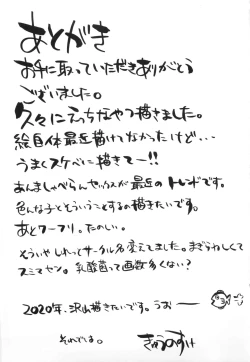 あとがき
お手に取っていただきありがとう
ございました。
久々にえっちなやつ描きました。
絵自体最近描けてなかったけど…
うまくスケベに描きてー!!
あんましゃべらんセックスが最近のトレンドです。
色んな子とそういうことするの描きたいです。
あとフーフリ。たのしい。
そういやしれっとサークル名変えてました。まぎらわしくて
スミマセン。乳酸菌って画数多くない?
2020年、沢山描きたいです。うおー
それでは。